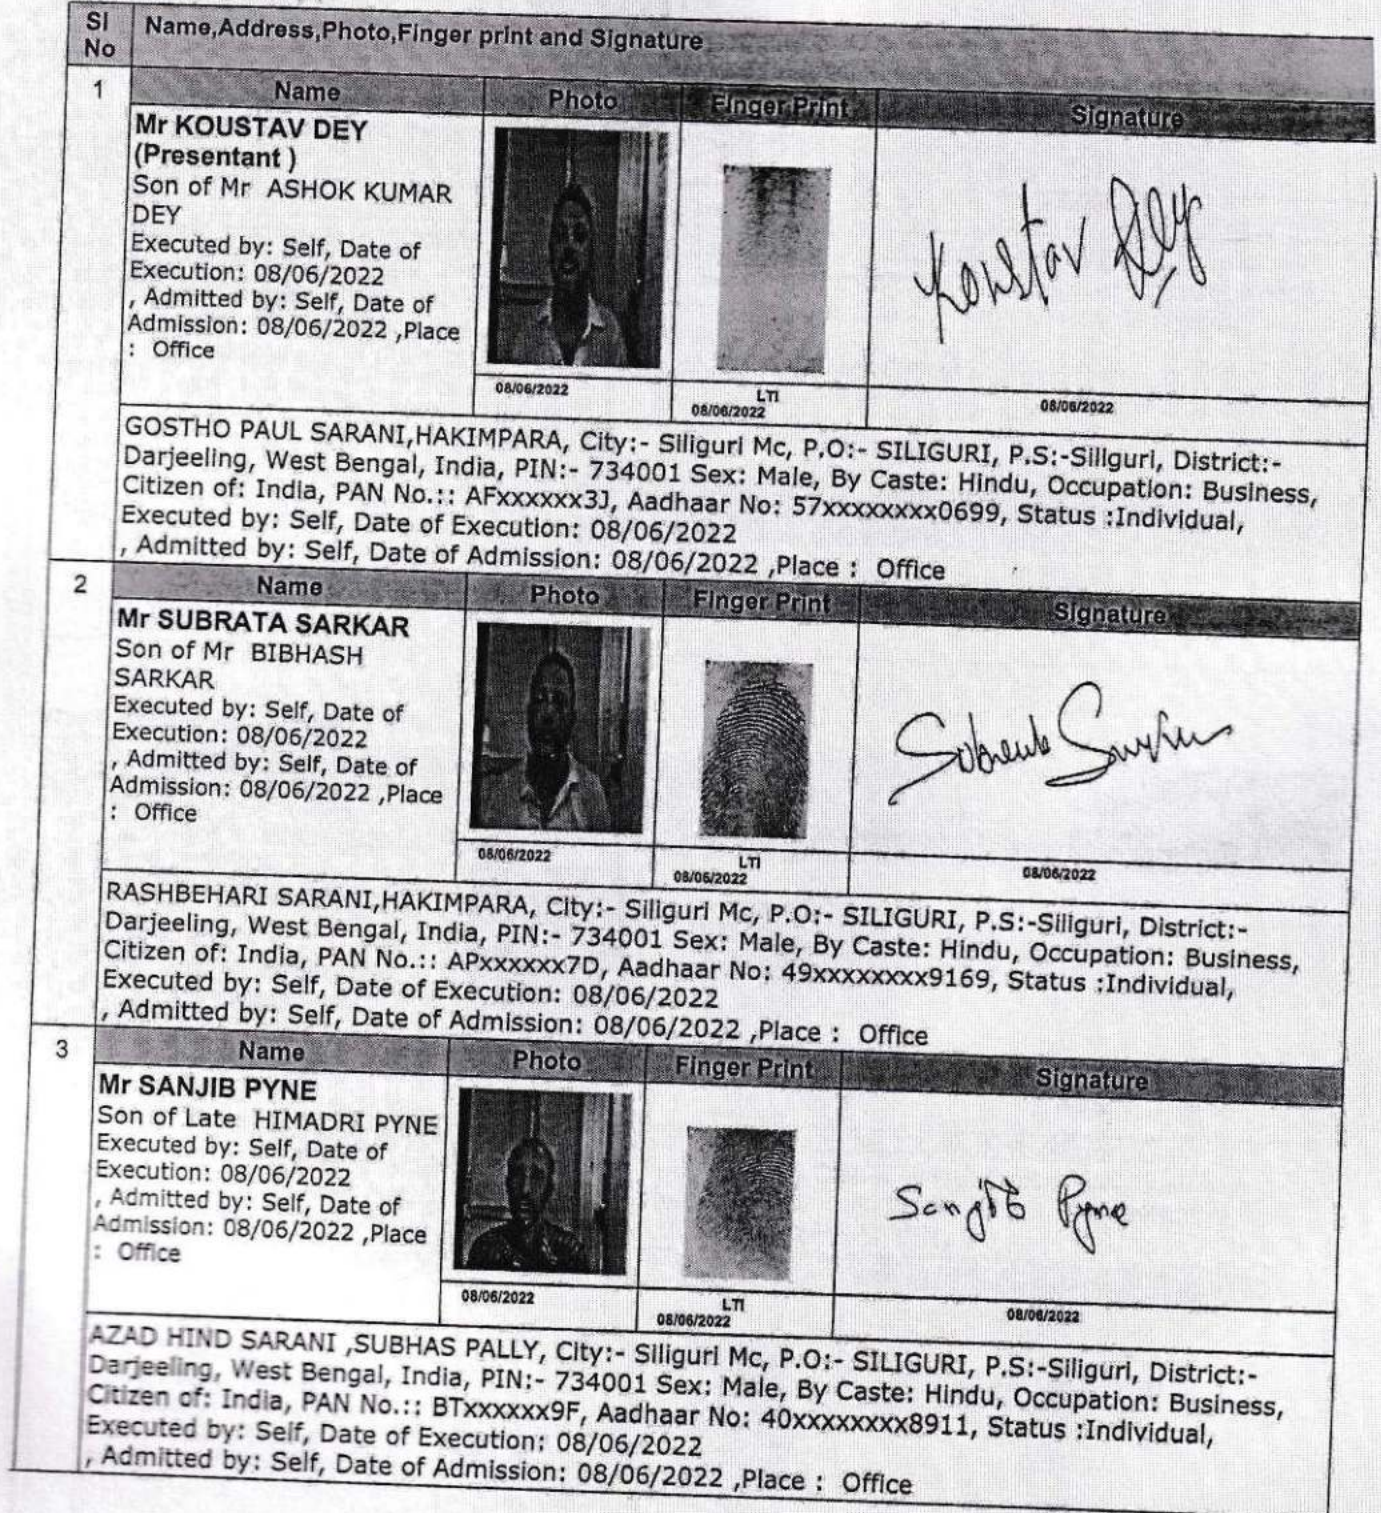 Sl No
Name,Address,Photo,Finger print and Signature
1
Name
Photo
Finger Print
Signature
Mr KOUSTAV DEY
(Presentant )
Son of Mr ASHOK KUMAR
DEY
Executed by: Self, Date of
Execution: 08/06/2022
, Admitted by: Self, Date of
Admission: 08/06/2022 ,Place
: Office
Koustav Dey
08/06/2022
LTI
08/06/2022
08/06/2022
GOSTHO PAUL SARANI,HAKIMPARA, City:- Siliguri Mc, P.O:- SILIGURI, P.S:-Siliguri, District:-
Darjeeling, West Bengal, India, PIN:- 734001 Sex: Male, By Caste: Hindu, Occupation: Business,
Citizen of: India, PAN No.:: AFxxxxxx3J, Aadhaar No: 57xxxxxxxx0699, Status :Individual,
Executed by: Self, Date of Execution: 08/06/2022
, Admitted by: Self, Date of Admission: 08/06/2022 ,Place : Office
2
Name
Photo
Finger Print
Signature
Mr SUBRATA SARKAR
Son of Mr BIBHASH
SARKAR
Executed by: Self, Date of
Execution: 08/06/2022
, Admitted by: Self, Date of
Admission: 08/06/2022 ,Place
: Office
08/06/2022
LTI
08/06/2022
08/06/2022
RASHBEHARI SARANI,HAKIMPARA, City:- Siliguri Mc, P.O:- SILIGURI, P.S:-Siliguri, District:-
Darjeeling, West Bengal, India, PIN:- 734001 Sex: Male, By Caste: Hindu, Occupation: Business,
Citizen of: India, PAN No.:: APxxxxxx7D, Aadhaar No: 49xxxxxxxx9169, Status :Individual,
Executed by: Self, Date of Execution: 08/06/2022
, Admitted by: Self, Date of Admission: 08/06/2022 ,Place : Office
3
Name
Photo
Finger Print
Signature
Mr SANJIB PYNE
Son of Late HIMADRI PYNE
Executed by: Self, Date of
Execution: 08/06/2022
, Admitted by: Self, Date of
Admission: 08/06/2022 ,Place
: Office
Sanjib Pyne
08/06/2022
LTI
08/06/2022
08/06/2022
AZAD HIND SARANI ,SUBHAS PALLY, City:- Siliguri Mc, P.O:- SILIGURI, P.S:-Siliguri, District:-
Darjeeling, West Bengal, India, PIN:- 734001 Sex: Male, By Caste: Hindu, Occupation: Business,
Citizen of: India, PAN No.:: BTxxxxxx9F, Aadhaar No: 40xxxxxxxx8911, Status :Individual,
Executed by: Self, Date of Execution: 08/06/2022
, Admitted by: Self, Date of Admission: 08/06/2022 ,Place : Office